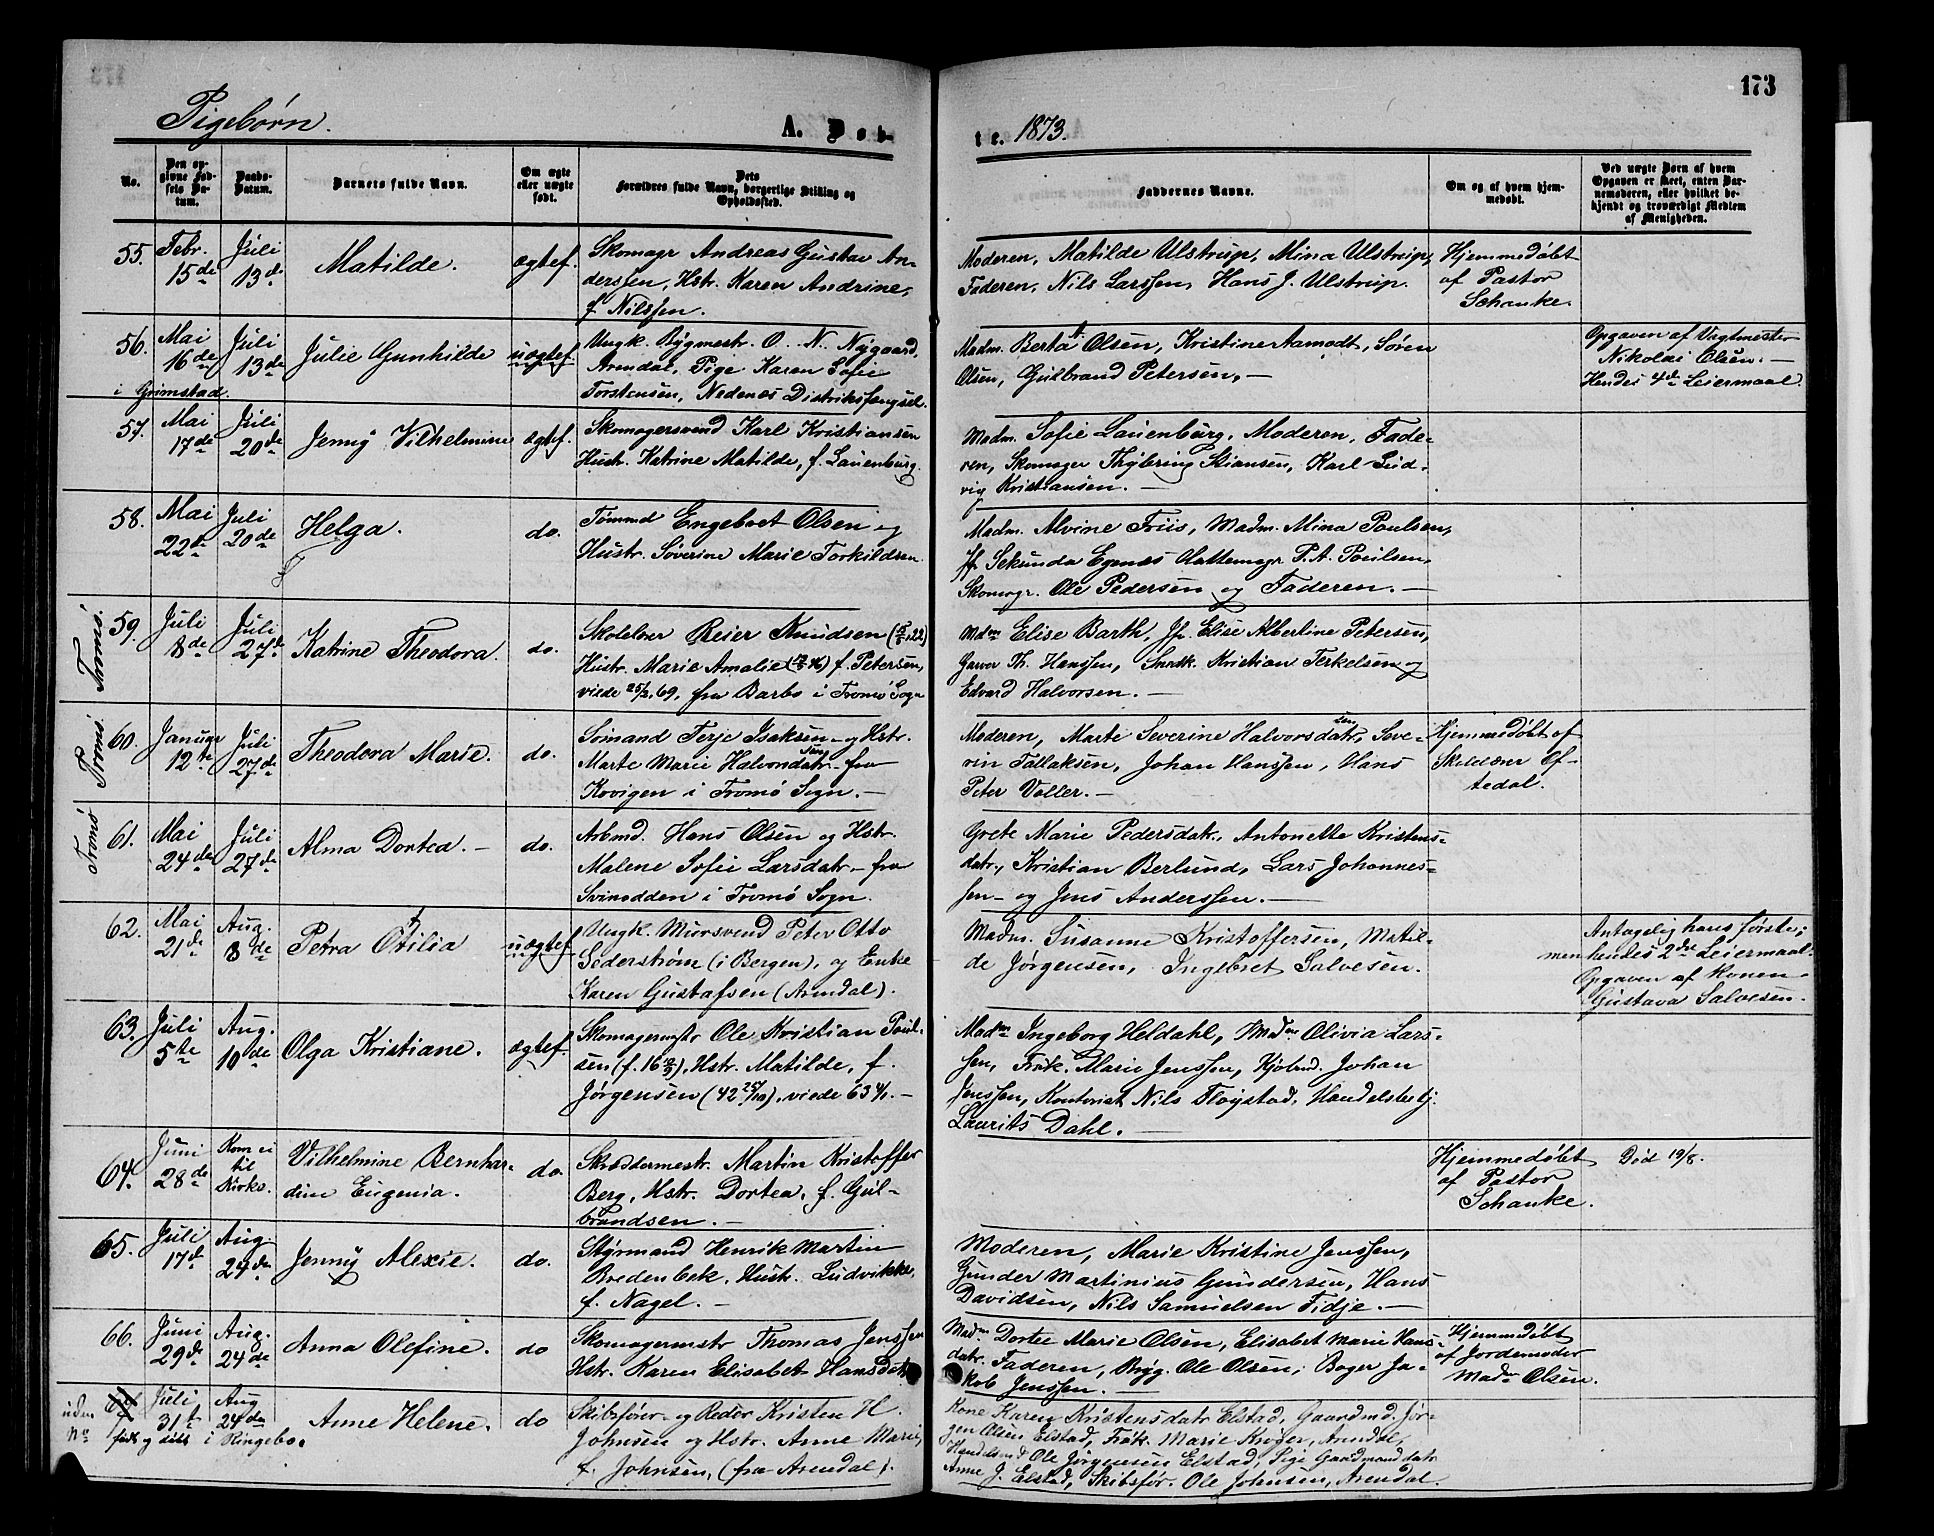 173
Pigebørn.
A. Døb-
te. 1873.
No.
Den op-
givne Fød-
sels Da-
tum.
Daabs-
Datum.
Barnets fulde Navn.
Om ægte
eller uægte
født.
Dets
Forældres fulde Navn, borgerlige Stilling og
Opholdssted.
Faddernes Navne.
Om og af hvem hjem-
medøbt.
Ved uægte Børn af hvem
Opgaven er skeet, enten Bar-
nemoderen, eller hvilket be-
kjendt og troværdigt Medlem
af Menigheden.
55. Febr. 15de Juli 13de Matilde. ægtef.
Skomagr Andreas Gustav An-
derssen, Hstr. Karen Andrine,
f. Nilssen.
Moderen, Matilde Ulstrup, Mina Ulstrup,
Faderen, Nils Larssen, Hans J. Ulstrup.
Hjemmedøbt
af Pastor
Schanke.
56. Mai 16de Juli 13de Julie Gunhilde uægtef.
i Grimstad.
Ungk. Bygmestr. O. N. Nygaard,
Arendal, Pige Karen Sofie
Torstensen, Nedenæs Distriksfængsel.
Madm. Berta Olsen, Kristine Aamodt, Søren
Olsen, Gulbrand Petersen, —
Opgaven af Vagtmester
Nikolai Olsen. —
Hendes 4de Leiermaal.
57. Mai 17de Juli 20de Jenny Vilhelmine ægtef.
Skomagersvend Karl Kristiansen
Hustr. Katrine Matilde, f. Lauenburg.
Madm. Sofie Lauenburg, Moderen, Fade-
ren, Skomager Thybring Stiansen, Karl Lud-
vig Kristiansen. —
58. Mai 22de Juli 20de Helga. do.
Tømmd Engebret Olsen og
Hustr. Søverine Marie Torkildsen.
Madm. Alvine Friis, Madm. Mina Poulsen,
Jf. Sekunda Egenæs Hattemagr P. A. Poulsen,
Skomagr. Ole Pedersen og Faderen. —
Tromø.
59. Juli 8de Juli 27de Katrine Theodora. do.
Skolelær Reier Knudsen
Hustr. Marie Amalie f. Petersen,
viede 25/2 69, fra Barbo i Tromø Sogn
Mdm Elise Barth, Jf. Elise Albertine Petersen,
Garver Th. Hanssen, Kristian Terkelsen og
Edvard Halvorsen. —
Tromø.
60. Januar 12te Juli 27de Theodora Marie. do.
Sømand Terje Isaksen og Hstr.
Marte Marie Halvorsdatr. fra
Kovigen i Tromø Sogn. —
Moderen, Marte Severine Halvorsdatr, Seve-
rin Tallaksen, Johan Hanssen, Hans
Peter Voller. —
Hjemmedøbt af
Skolelærer Of-
tedal.
Tromø
61. Mai 24de Juli 27de Alma Dortea. — do.
Arbmd. Hans Olsen og Hstr.
Malene Sofie Larsdatr. fra
Svinodden i Tromø Sogn.
Grete Marie Pedersdatr., Antonette Kristens-
datr., Kristian Berlund, Lars Johannes-
sen og Jens Anderssen. —
62. Mai 21de Aug. 8de Petra Otilia uægtef
Ungk. Mursvend Peter Otto
Sederstrøm (i Bergen), og Enke
Karen Gustafsen (Arendal).
Madm. Susanne Kristoffersen, Matil-
de Jørgensen, Ingebret Salvesen.
Antagelig hans første;
men hendes 2det Leiermaal.
Opgaven af Konen
Gustava Salvesen.
63. Juli 5te Aug. 10de Olga Kristiane. ægtef.
Skomagermstr Ole Kristian Poul-
sen Hstr. Matilde, f.
Jørgensen (42 25/10), viede 63 4/1. —
Madm Ingeborg Heldahl, Mdm. Olivia Lars-
sen, Frøk. Marie Jenssen, Kjøbmd. Johan
Jenssen, Kontorist Nils Fløystad, Handelsbetj.
Laurits Dahl. —
64. Juni 28de Kom ei
til
Kirke.
Vilhelmine Bernhar-
dine Eugenia. do.
Skræddermestr. Martin Kristoffer
Berg, Hstr. Dortea, f. Gul-
brandsen. —
Hjemmedøbt
af Pastor
Schanke.
Død 19/8.
65. Juli 17de Aug. 24de Jenny Alexie. do.
Styrmand Henrik Martin
Bredenbek, Hustr. Ludvikke,
f. Nagel. —
Moderen, Marie Kristine Jenssen,
Gunder Martinius Gundersen, Hans
Davidsen, Nils Samuelsen Fidje. —
66. Juni 29de Aug. 24de Anna Olefine. do
Skomagermstr Thomas Jenssen
Hstr. Karen Elisabet Hansdatr
Madm Dortee Marie Olsen, Elisabet Marie Hans-
datr. Faderen, Brygg. Ole Olsen, Bager Ja-
kob Jenssen. —
Hjemmedøbt
af Jordemoder
Madm Olsen.
uden
No
Juli 31te Aug 24de Anne Helene. do
født og døbt i Ringebo.
Skibsfører og Reder Kristen H.
Johnsen og Hstr. Anne Marie,
f. Johnsen, (fra Arendal).
Kone Karen Kristensdatr Elstad, Gaardmd. Jør-
gen Olsen Elstad, Frøk. Marie Krøger, Arendal,
Handelsmd Ole Jørgensen Elstad, Pige Gaardmandsdatr
Anne J. Elstad, Skibsfør. Ole Johnsen, Arendal.